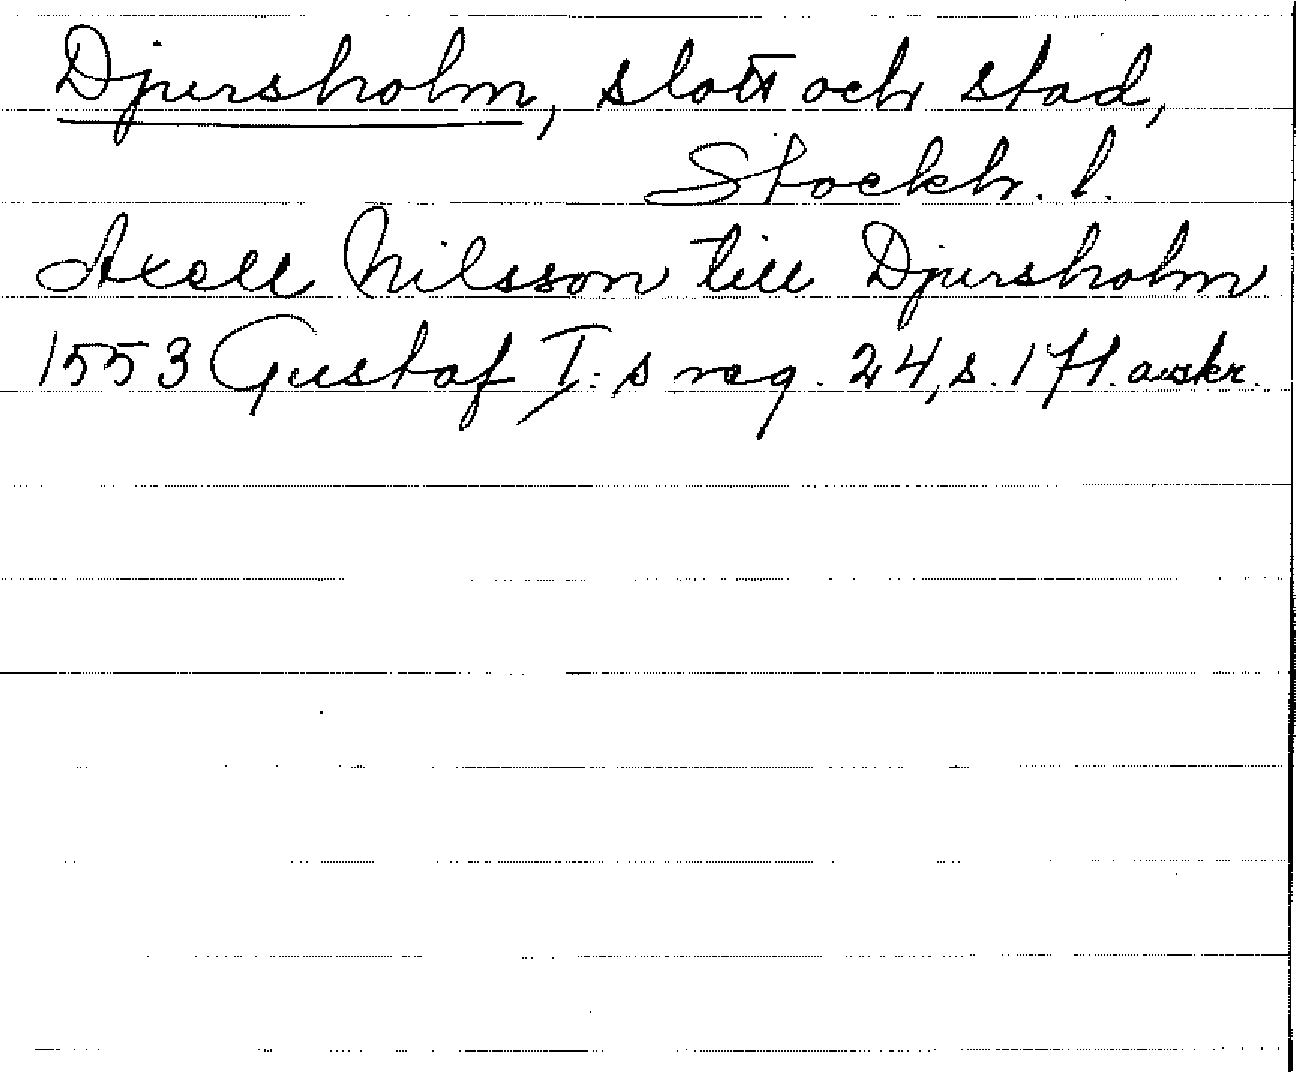 Djursholm, slott och stad,
Stockh. l.
Axell Nilsson till Djursholm
1553 Gustaf I:s reg. 24, s. 171. avskr.